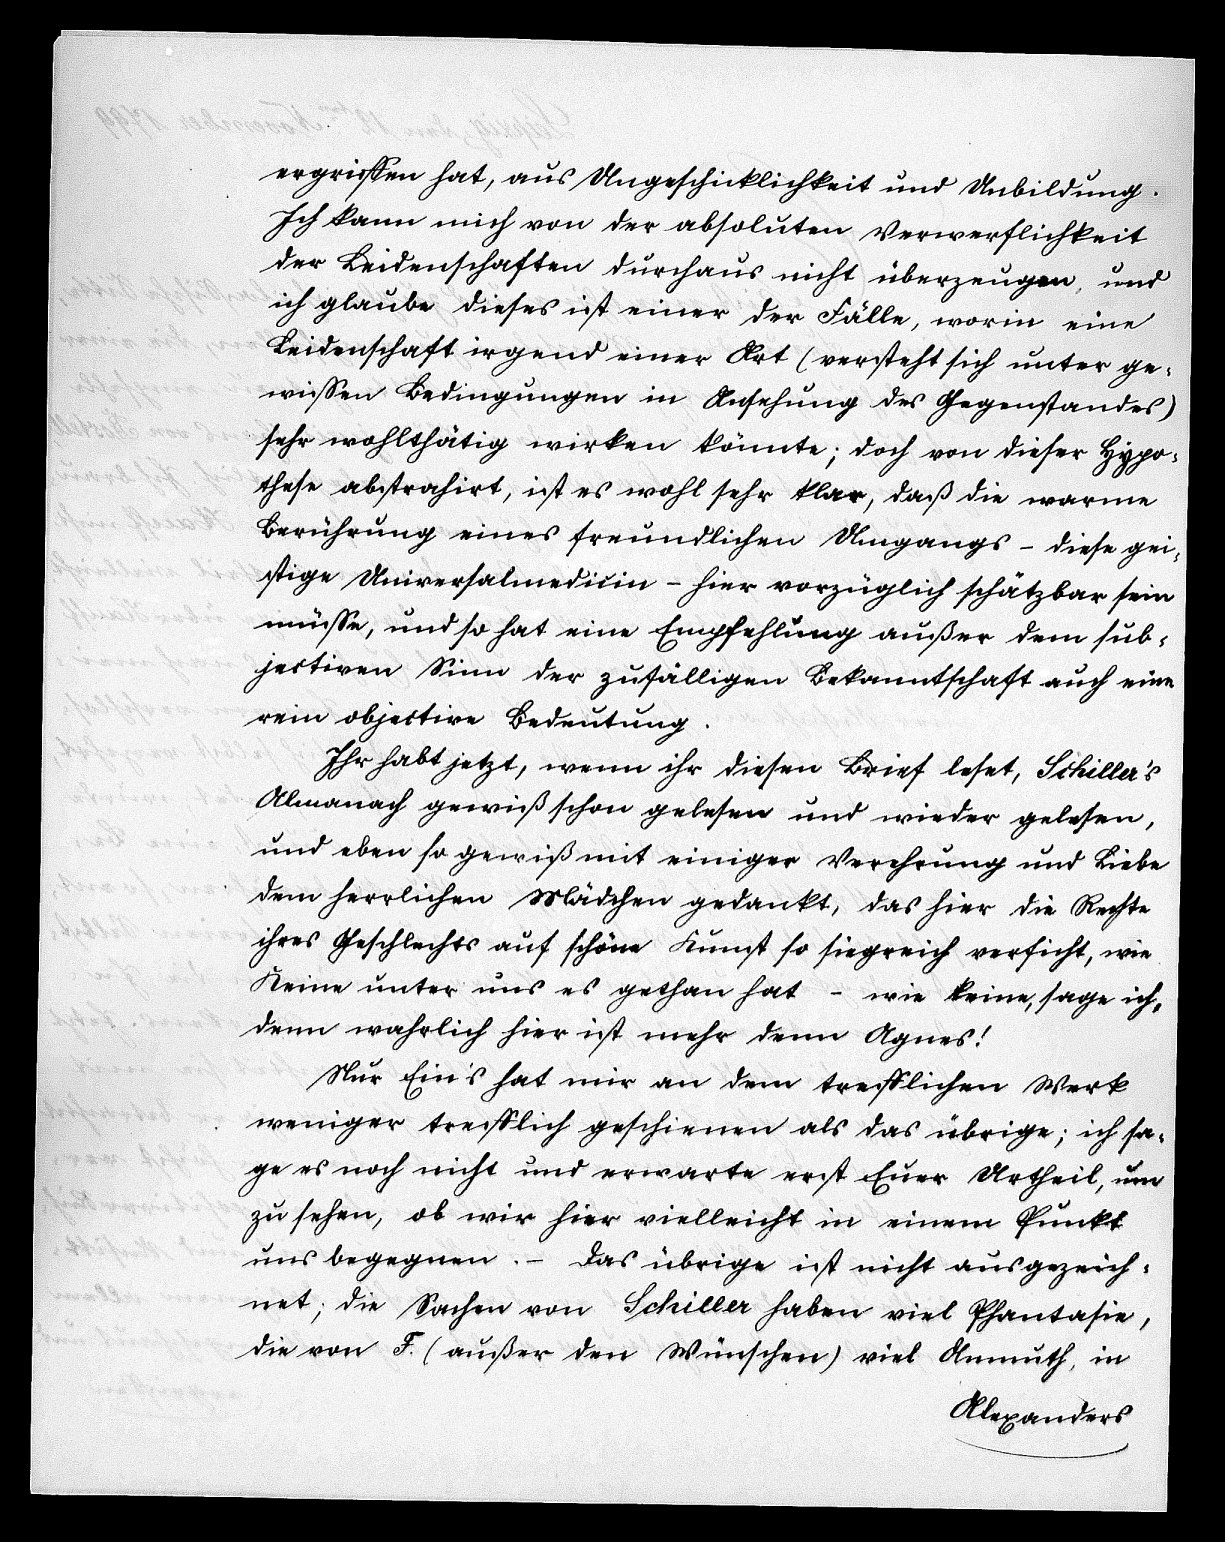 ergriffen hat, aus Ungeschicklichkeit und Unbildung.
Ich kann mich von der absoluten Verwerflichkeit
der Leidenschaften durchaus nicht überzeugen, und
ich glaube dieses ist einer der Fälle, worin eine
Leidenschaft irgend einer Art (versteht sich unter ge=
wissen Bedingungen in Ansehung des Gegenstandes)
sehr wohlthätig wirken könnte; doch von dieser Hypo=
these abstrahirt, ist es wohl sehr klar, daß die warme
Berührung eines freundlichen Umgangs – diese gei=
stige Universalmedicin – hier vorzüglich schätzbar sein
müsse, und so hat eine Empfehlung außer dem sub=
jectiven Sinn der zufälligen Bekanntschaft auch eine
rein objective Bedeutung.
Ihr habt jetzt, wenn ihr diesen Brief leset, Schiller's
Almanach gewiß schon gelesen und wieder gelesen,
und eben so gewiß mit einiger Verehrung und Liebe
dem herrlichen Mädchen gedankt, das hier die Rechte
ihres Geschlechts auf schöne Kunst so siegreich verficht, wie
Keine unter uns es gethan hat – wie keine, sage ich,
denn wahrlich hier ist mehr denn Agnes!
Nur Ein's hat mir an dem trefflichen Werk
weniger trefflich geschienen als das übrige; ich sa=
ge es noch nicht und erwarte erst Euer Urtheil, um
zu sehen, ob wir hier vielleicht in einem Punkt
uns begegnen. – Das übrige ist nicht ausgezeich=
net; die Sachen von Schiller haben viel Phantasie,
die von F. (außer den Wünschen) viel Anmuth, in
Alexanders